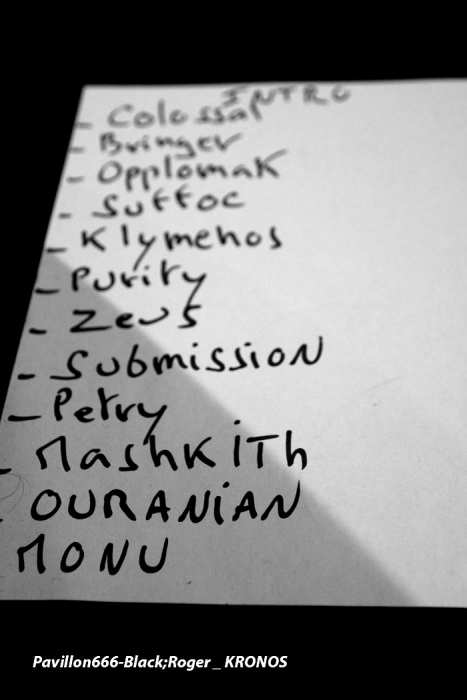 INTRO
- Colossal
- Bringer
- Opplomak
- Suffoc
- Klymenos
- Purity
- Zeus
- Submission
- Petry
- Mashkith
- OURANIAN
MONU
Pavillon666-Black;Roger _ KRONOS